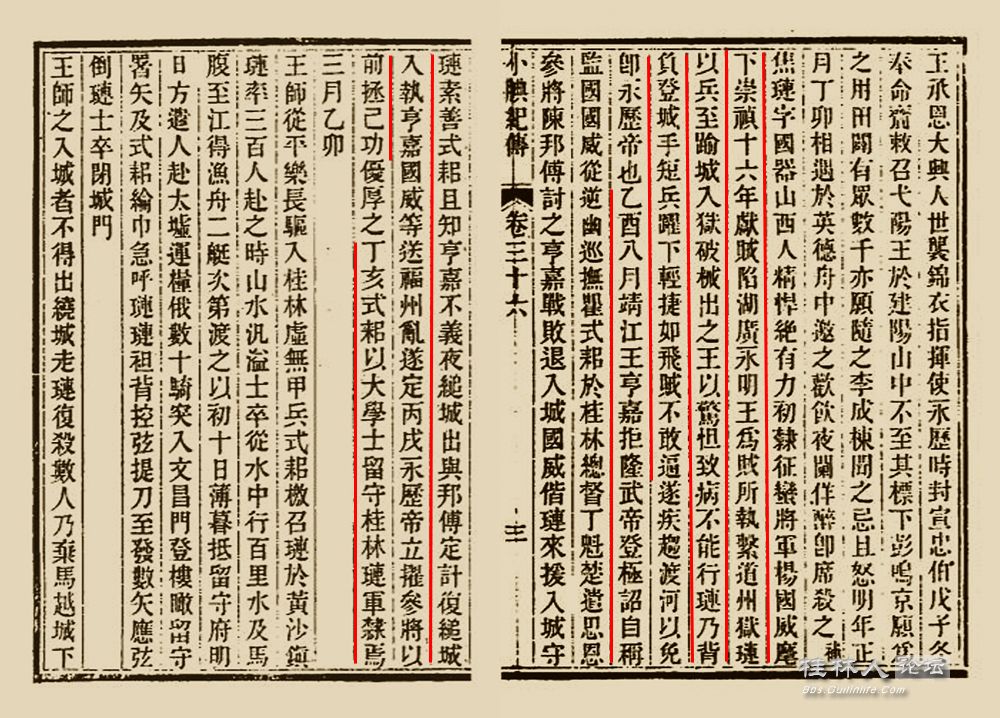 王承恩大興人世襲錦衣指揮使永歷時封宣忠伯戊子冬
奉命齎敕召弋陽王於建陽山中不至其標下彭鳴京願為
之用田闢有眾數千亦願隨之李成棟聞之忌且怒明年正
月丁卯相遇於英德舟中邀之歡飲夜闌佯醉卽席殺之 補
焦璉字國器山西人精悍絕有力初隸征蠻將軍楊國威麾
下崇禎十六年獻賊陷湖廣永明王爲賊所執繫道州獄璉
以兵至踰城入獄破械出之王以驚怛致病不能行璉乃背
負登城手短兵躍下輕捷如飛賊不敢逼遂疾趨渡河以免
卽永歷帝也乙酉八月靖江王亨嘉拒隆武帝登極詔自稱
監國國威從逆幽巡撫瞿式耜於桂林總督丁魁楚遣思恩
參將陳邦傅討之亨嘉戰敗退入城國威偕璉來援入城守
小腆紀傳 卷三十六
璉素善式耜且知亨嘉不義夜縋城出與邦傅定計復縋城
入執亨嘉國威等送福州亂遂定丙戌永歷帝立擢參將以
前拯己功優厚之丁亥式耜以大學士留守桂林璉軍隸焉
三月乙卯
王師從平樂長驅入桂林虛無甲兵式耜檄召璉於黃沙鎮
璉率三百人赴之時山水汎溢士卒從水中行百里水及馬
腹至江得漁舟二艇次第渡之以初十日薄暮抵留守府明
日方遣人赴太墟運糧俄數十騎突入文昌門登樓瞰留守
署矢及式耜綸巾急呼璉璉袒背控弦提刀至發數矢應弦
倒璉士卒閉城門
王師之入城者不得出繞城走璉復殺數人乃棄馬越城下
桂林人论坛